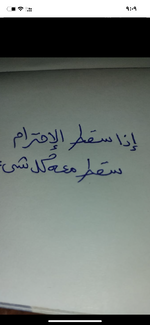 ٩:٠٩
إذا سقط الإحترام
سقط معه كل شيء